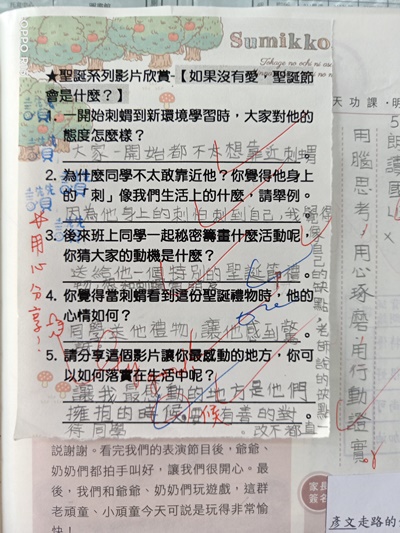 Sumikko
★聖誕系列影片欣賞-【如果沒有愛，聖誕節
會是什麼？】
1. 一開始刺蝟到新環境學習時，大家對他的
態度怎麼樣？
大家一開始都不太想靠近刺蝟
2. 為什麼同學不太敢靠近他？你覺得他身上
的「刺」像我們生活上的什麼，請舉例。
因為他身上的刺怕刺到自己，我覺得
像自己的缺點，老師說的缺點
3. 後來班上同學一起秘密籌畫什麼活動呢，
你猜大家的動機是什麼？
送給他一個特別的聖誕節禮
4. 你覺得當刺蝟看到這份聖誕禮物時，他的
心情如何？
同學送他禮物，讓他感到驚
5. 請分享這個影片讓你最感動的地方，你可
以如何落實在生活中呢？
讓我最感動的地方是他們
擁抱的時候，要友善的對
待同學
候
用心分享！
天功課·明
用腦思考，用心琢磨，用行動證實。
説謝謝。看完我們的表演節目後，爺爺、
奶奶們都拍手叫好，讓我們很開心。最
後，我們和爺爺、奶奶們玩遊戲，這群
老頑童、小頑童今天可説是玩得非常愉
快！
家長
簽名
彥文走路的